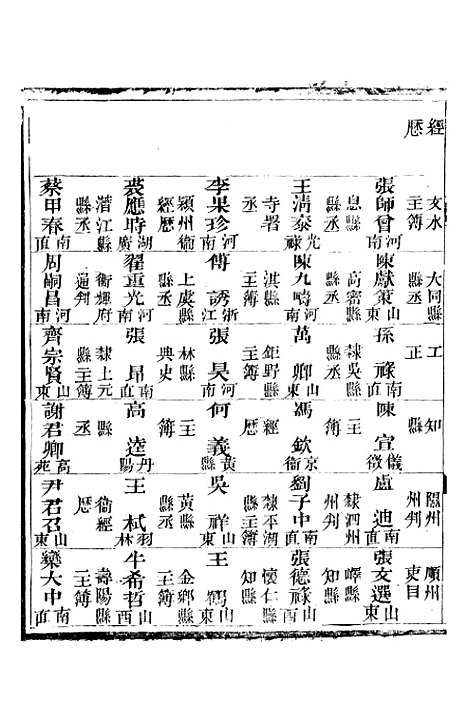 經歷
文水主簿 大同縣縣丞 工正 知縣 隰州州判 順州吏目
張師曾河南 陳獻策山東 孫祿南直 陳宣儀徵 盧迪南直 張文選山東
息縣縣丞 高密縣縣丞 隸吳縣主簿 主簿 隸泗州知縣 嶧縣知縣
王清泰光祿 陳九疇河南 萬卿山東 馮欽京衞 劉子中南直 張德祿山西
寺署丞 淇縣主簿 鉅野縣 經歷 隸平湖縣主簿 懷仁縣知縣
李果珍河南 傅誘浙江 張昊河南 何義黃縣 吳祥山東 王鶴山東
潁州衞經歷 上虞縣縣丞 林縣典史 主簿 黃縣主簿 金鄉縣主簿
裘應時湖廣 翟重光河南 張昂南直 高逵丹陽 王栻羽林 牛希哲山西
潛江縣縣丞 衞輝府通判 隸上元縣主簿 縣丞 衞經歷 壽陽縣主簿
蔡甲春南直 周嗣昌河南 齊宗賢山東 謝君卿高苑 尹君召山東 欒大中南直